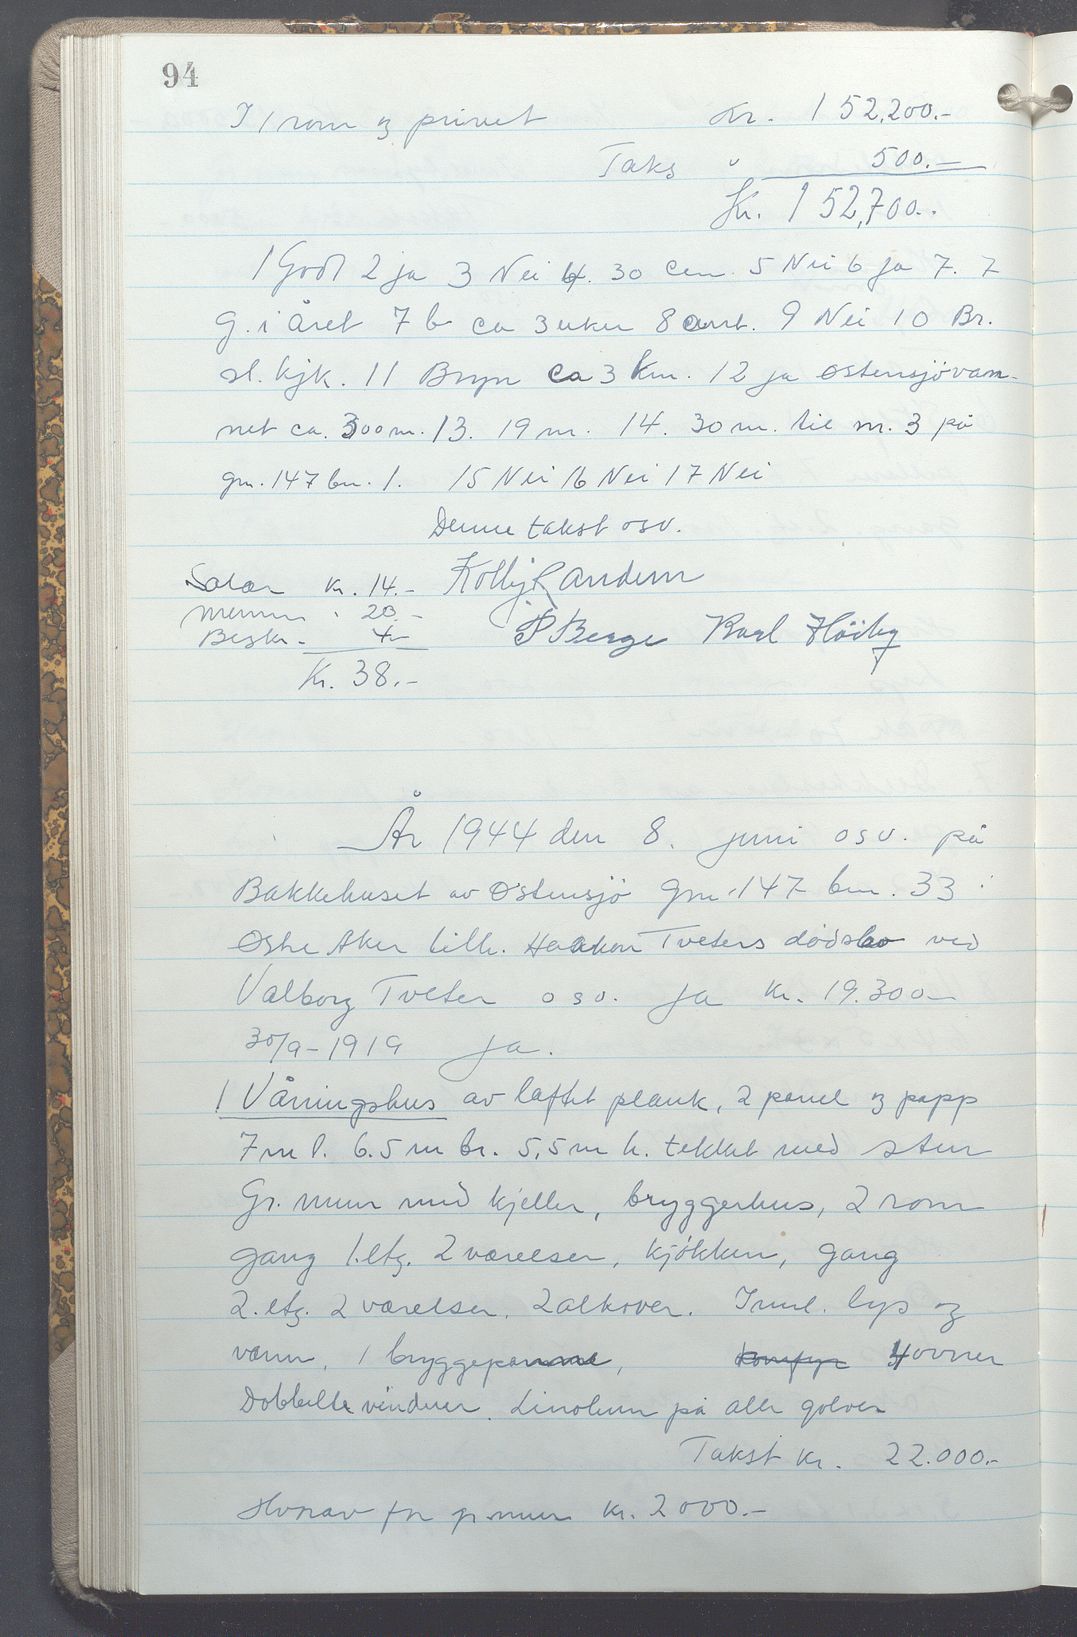 94
I 1 rom og privet Kr. 152,200.-
Taks " 500.-
Kr. 152,700.-
1 Godt 2 ja 3 Nei 4. 30 cm. 5 Nei 6 ja 7. 7
g. i Året 7 b ca 3 uker 8 amt. 9 Nei 10 Br.
sl. kjk. 11 Bryn ca 3 km. 12 ja Østensjövan-
net ca. 300 m. 13. 19 m. 14. 30 m. til nr. 3 på
gnr. 147 bnr. 1. 15 Nei 16 Nei 17 Nei
Denne takst osv.
Salær kr. 14.- Kolbj. Randem
" 20.-
Beskr. - 4- P Berge Karl Høiby
Kr. 38.-
År 1944 den 8. juni osv. på
Bakkehuset av Østensjö gnr. 147 bnr. 33 i
Østre Aker tilh. Haakon Tveters dødsbo ved
Valborg Tveter osv. ja kr. 19.300-
30/9-1919 ja.
1 Våningshus av laftet plank, 2 panel og papp
7 m l. 6.5 m br. 5,5 m h. tekket med sten
Gr. mur med kjeller, bryggerhus, 2 rom
gang 1. etg. 2 værelser, kjøkken, gang
2. etg. 2 værelser. 2 alkover. Innl. lys og
vann. 1 bryggepanne, komfyr 4 ovner
Dobbelte vinduer. Linoleum på alle golver
Takst kr. 22.000.-
Hvorav for gr. mur kr. 2000.-